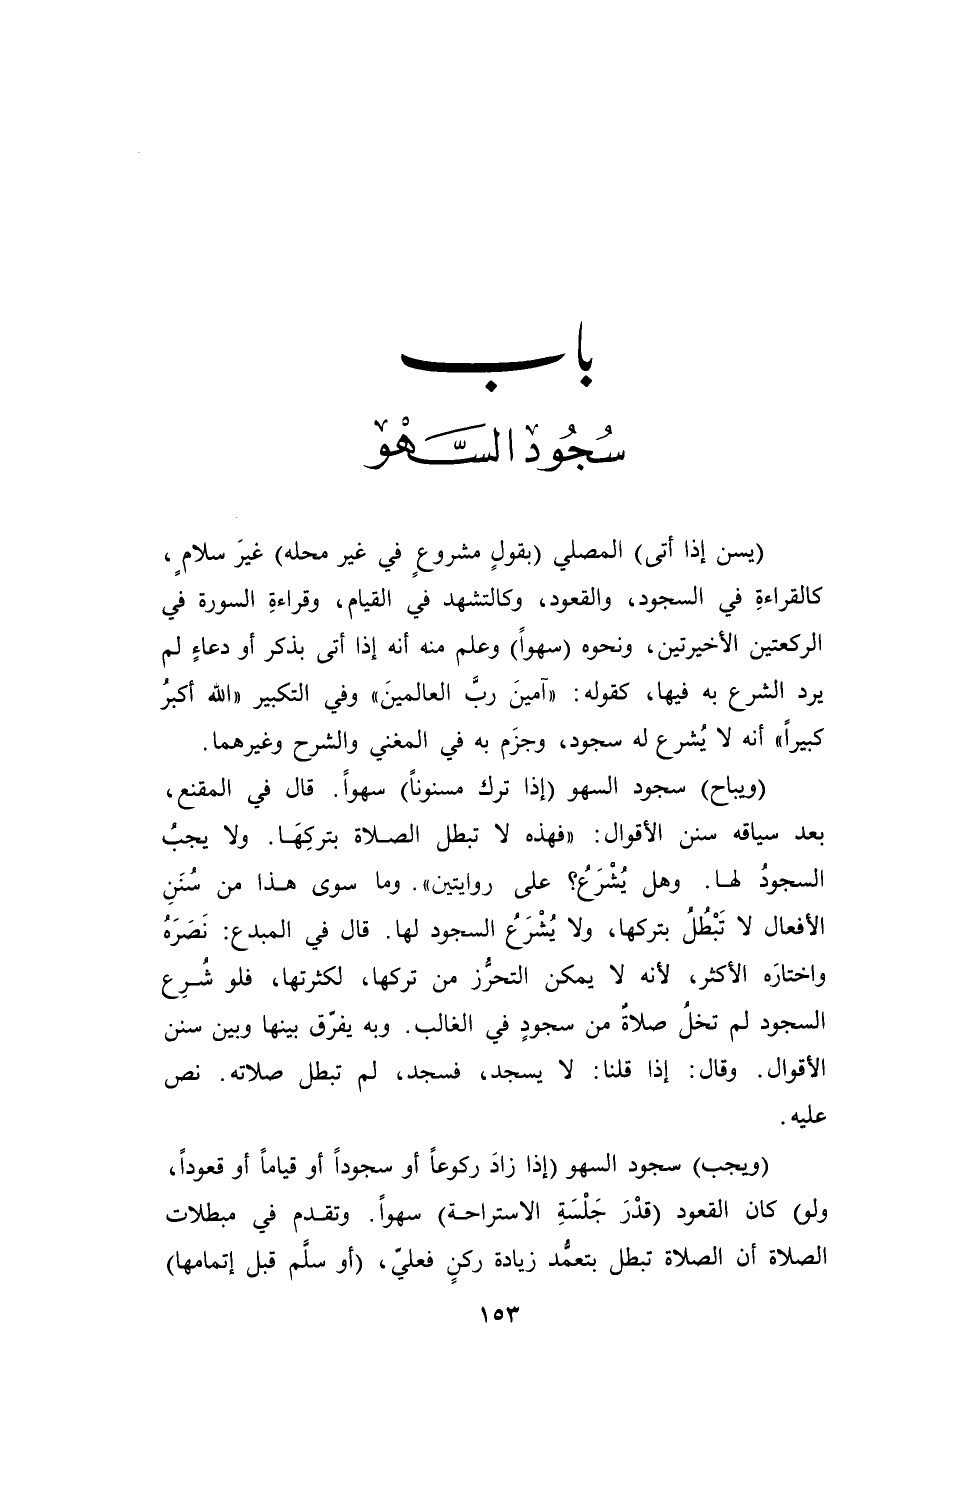 باب
سُجُود السَّهْو
(يسن إذا أتى) المصلي (بقولٍ مشروعٍ في غير محله) غيرَ سلامٍ،
كالقراءةِ في السجود، والقعود، وكالتشهد في القيام، وقراءةِ السورة في
الركعتين الأخيرتين، ونحوه (سهواً) وعلم منه أنه إذا أتى بذكر أو دعاءٍ لم
يرد الشرع به فيها، كقوله: «آمينَ ربَّ العالمينَ» وفي التكبير «الله أكبرُ
كبيراً» أنه لا يُشرع له سجود، وجزَم به في المغني والشرح وغيرهما.
(ويباح) سجود السهو (إذا ترك مسنوناً) سهواً. قال في المقنع،
بعد سياقه سنن الأقوال: «فهذه لا تبطل الصلاة بتركِهَا. ولا يجبُ
السجودُ لها. وهل يُشْرَعُ؟ على روايتين». وما سوى هذا من سُنَنِ
الأفعال لا تَبْطُلُ بتركها، ولا يُشْرَعُ السجود لها. قال في المبدع: نَصَرَهُ
واختارَه الأكثر، لأنه لا يمكن التحرُّز من تركها، لكثرتها، فلو شُرِع
السجود لم تخلُ صلاةٌ من سجودٍ في الغالب. وبه يفرّق بينها وبين سنن
الأقوال. وقال: إذا قلنا: لا يسجد، فسجد، لم تبطل صلاته. نص
عليه.
(ويجب) سجود السهو (إذا زادَ ركوعاً أو سجوداً أو قياماً أو قعوداً،
ولو) كان القعود (قدْرَ جَلْسَةِ الاستراحة) سهواً. وتقدم في مبطلات
الصلاة أن الصلاة تبطل بتعمُّد زيادة ركنٍ فعليّ، (أو سلَّم قبل إتمامها)
١٥٣